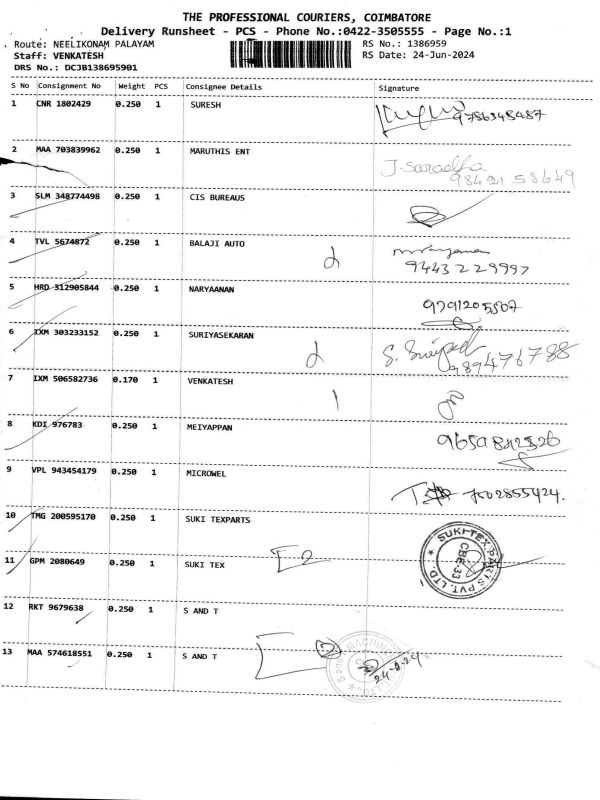 THE PROFESSIONAL COURIERS, COIMBATORE
Delivery Runsheet - PCS - Phone No.:0422-3505555 - Page No.:1
Route: NEELIKONAM PALAYAM RS No.: 1386959
Staff: VENKATESH RS Date: 24-Jun-2024
DRS No.: DCJB138695901
S No Consignment No Weight PCS Consignee Details Signature
1 CNR 1802429 0.250 1 SURESH 9786348487
2 MAA 703839962 0.250 1 MARUTHIS ENT J. Saradha
98421 58649
3 SLM 348774498 0.250 1 CIS BUREAUS
4 TVL 5674872 0.250 1 BALAJI AUTO 2
9443229997
5 HRD 312905844 0.250 1 NARYAANAN
6 IXM 303233152 0.250 1 SURIYASEKARAN 2 989476788
7 IXM 506582736 0.170 1 VENKATESH 1
8 KDI 976783 0.250 1 MEIYAPPAN
9 VPL 943454179 0.250 1 MICROWEL 7502855424.
10 TMG 200595170 0.250 1 SUKI TEXPARTS
SUKI TEX PARTS PVT. LTD. CBE-33
11 GPM 2080649 0.250 1 SUKI TEX 2
12 RKT 9679638 0.250 1 S AND T
13 MAA 574618551 0.250 1 S AND T 2
24-6-24